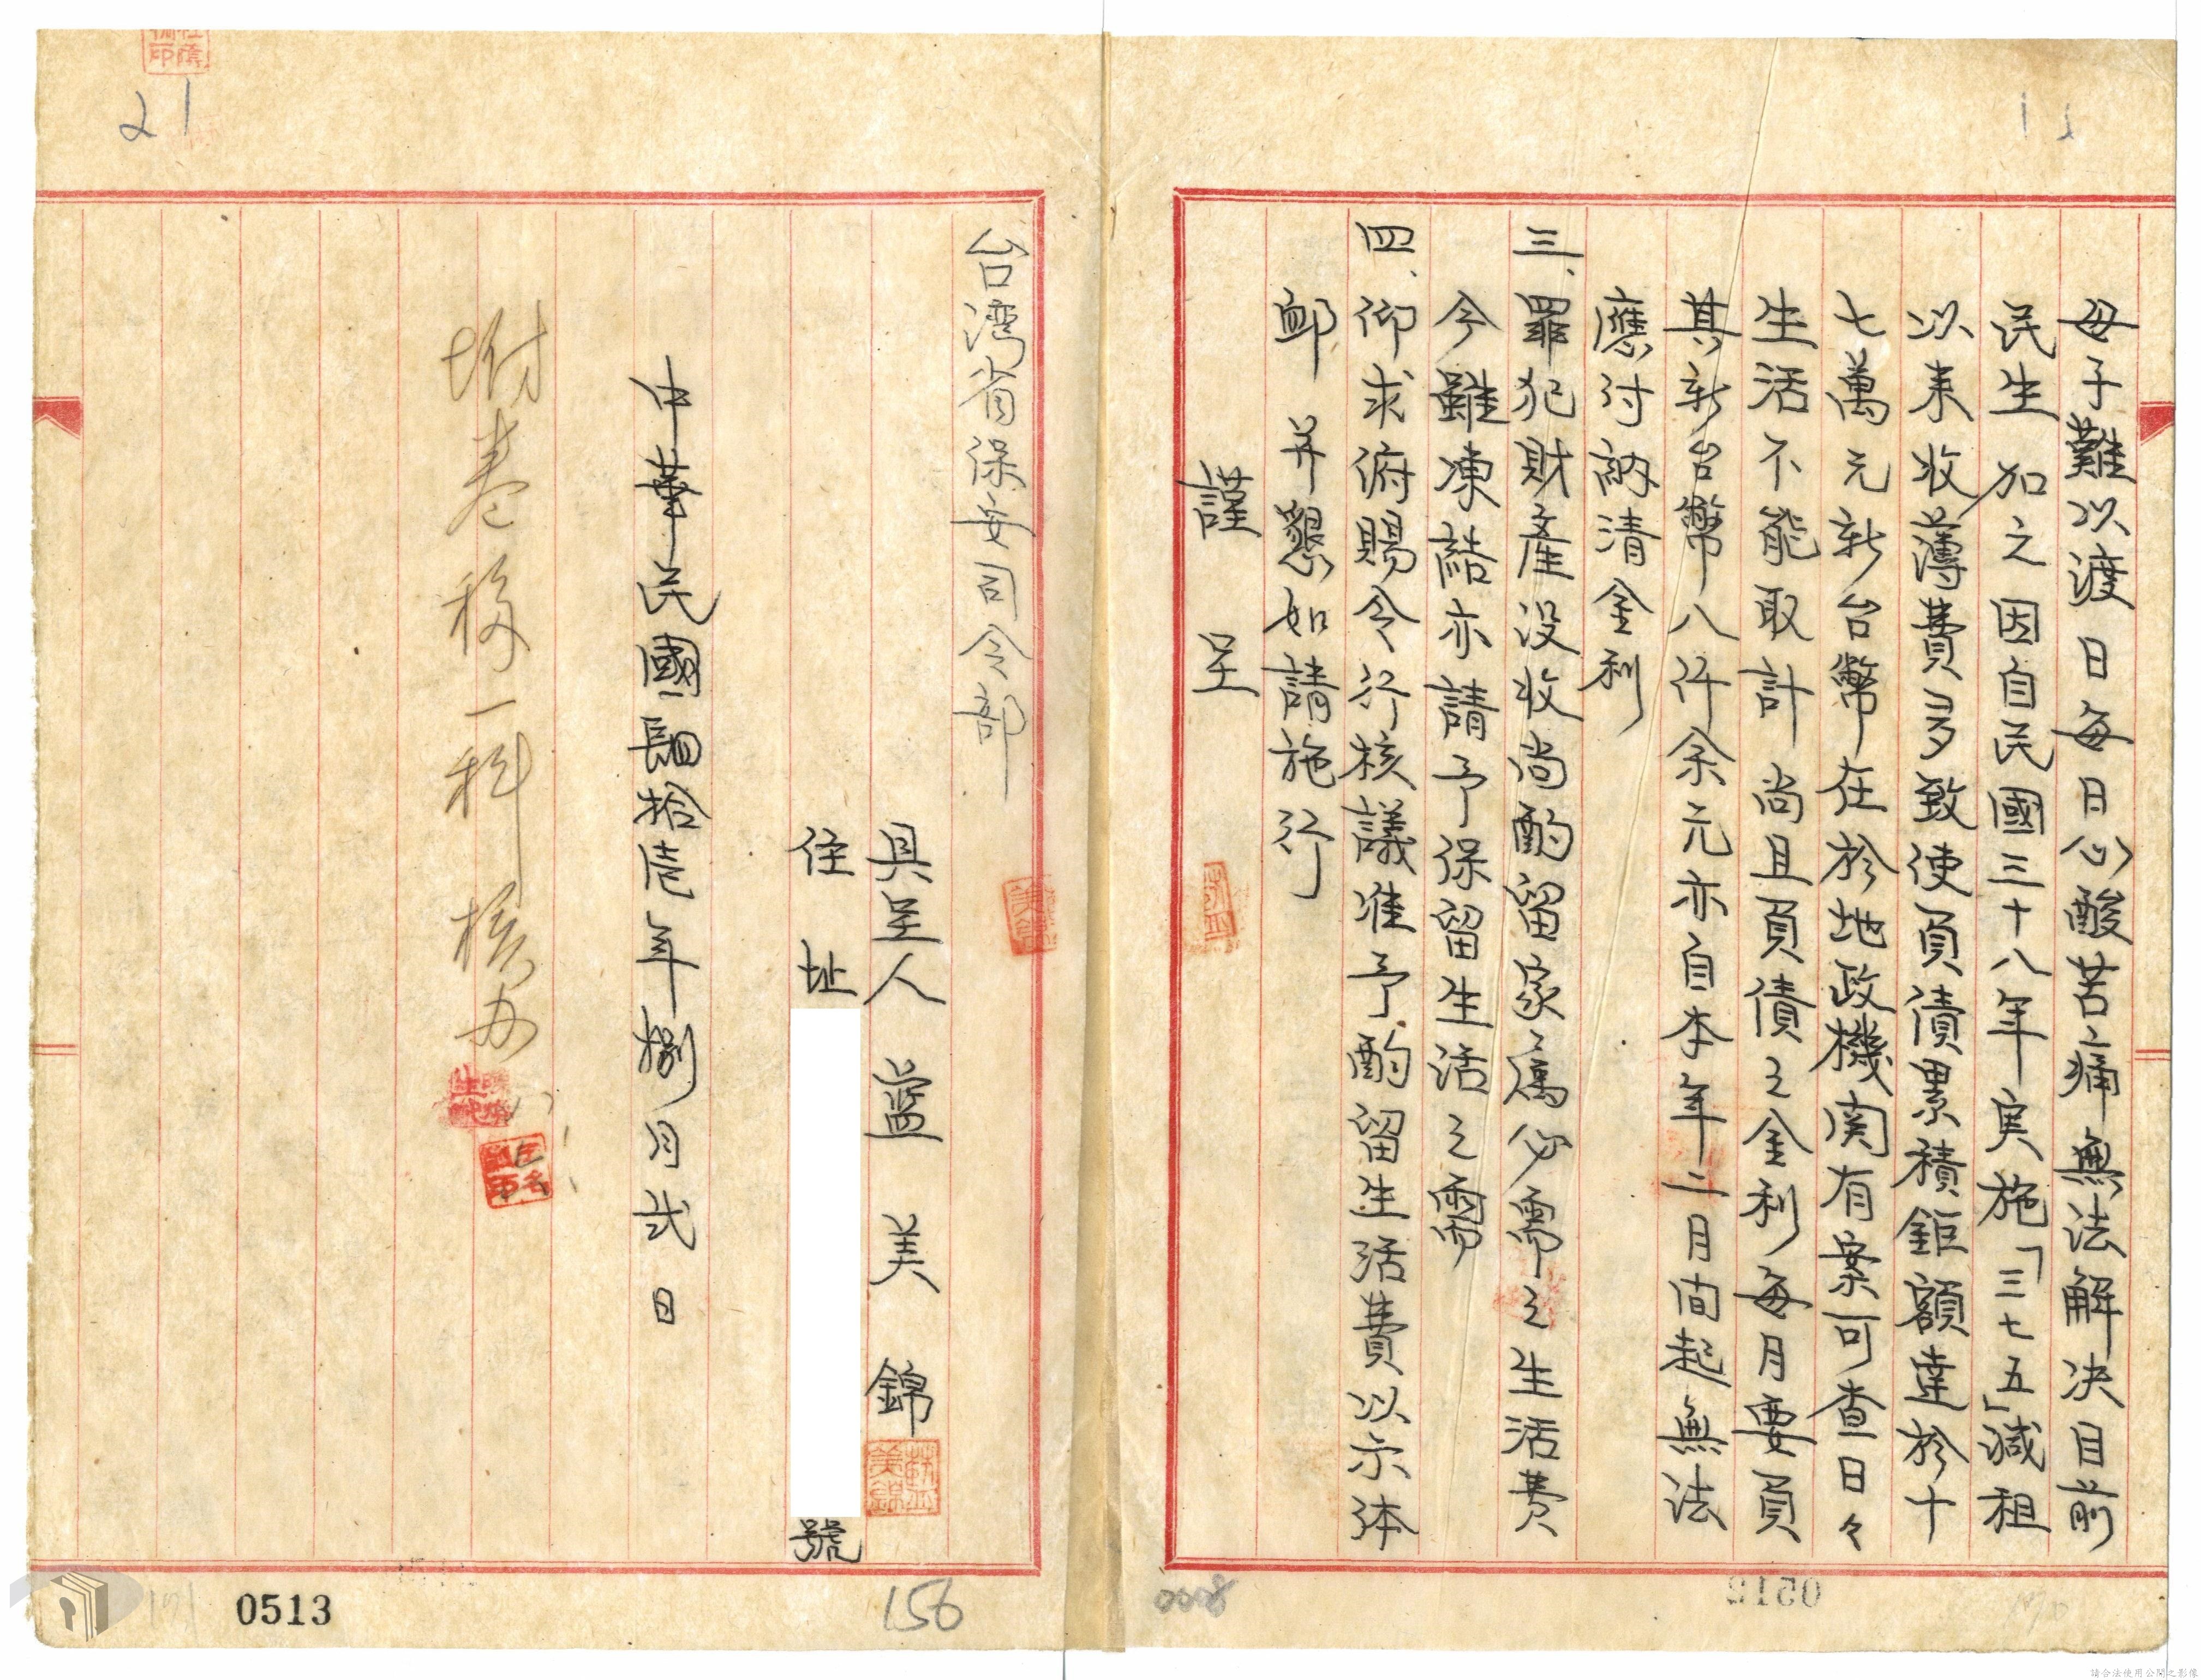 母子難以渡日每日心酸苦痛無法解決目前
民生加之因自民國三十八年実施「三七五」減租
以来收薄費多致使負債累積鉅額達於十
七萬元新台幣在於地政機関有案可查日々
生活不能取計尚且負債之金利每月要負
其新台幣八仟余元亦自本年二月間起無法
應付納清金利
三、罪犯財產没收尚酌留家屬必需之生活費
今雖凍結亦請予保留生活之需
四、仰求俯賜令行核議准予酌留生活費以示体
卹并懇如請施行
謹呈
台湾省保安司令部
具呈人 藍美錦
住址 號
中華民國肆拾壹年捌月弍日
附卷移一科核办
21
0513
156
0512
請合法使用公開之影像